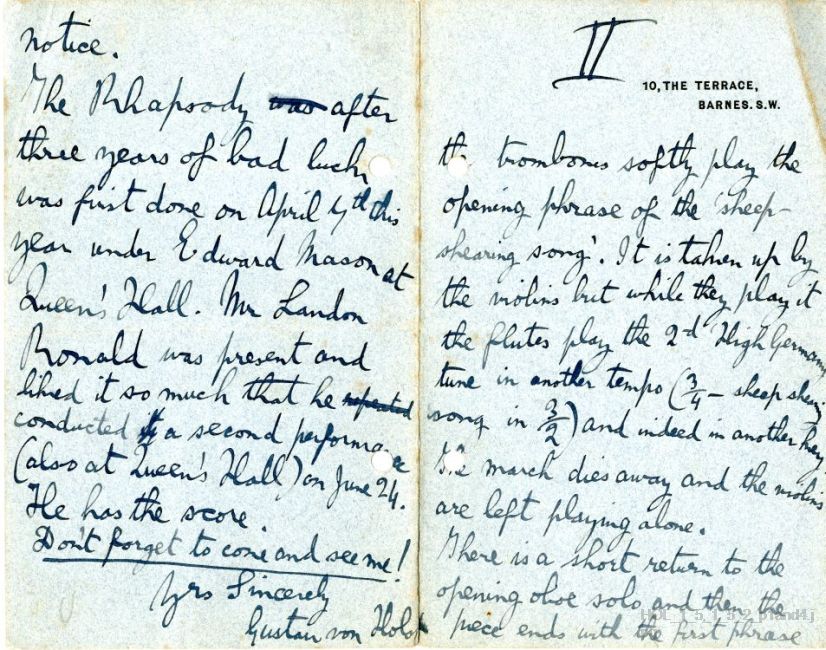 notice.
The Rhapsody was after
three years of bad luck
was first done on April 4th this
year under Edward Mason at
Queen's Hall. Mr Landon
Ronald was present and
liked it so much that he repeated
conducted it a second performance
(also at Queen's Hall) on June 24.
He has the score.
Don't forget to come and see me!
Yrs Sincerely
Gustav von Holst
II
10, THE TERRACE,
BARNES. S.W.
the trombones softly play the
opening phrase of the 'sheep-
shearing song'. It is taken up by
the violins but while they play it
the flutes play the 2nd High Germany
tune in another tempo (3/4 - sheep shearing
song in 3/2) and indeed in another key
The march dies away and the violins
are left playing alone.
There is a short return to the
opening oboe solo and then the
piece ends with the first phrase